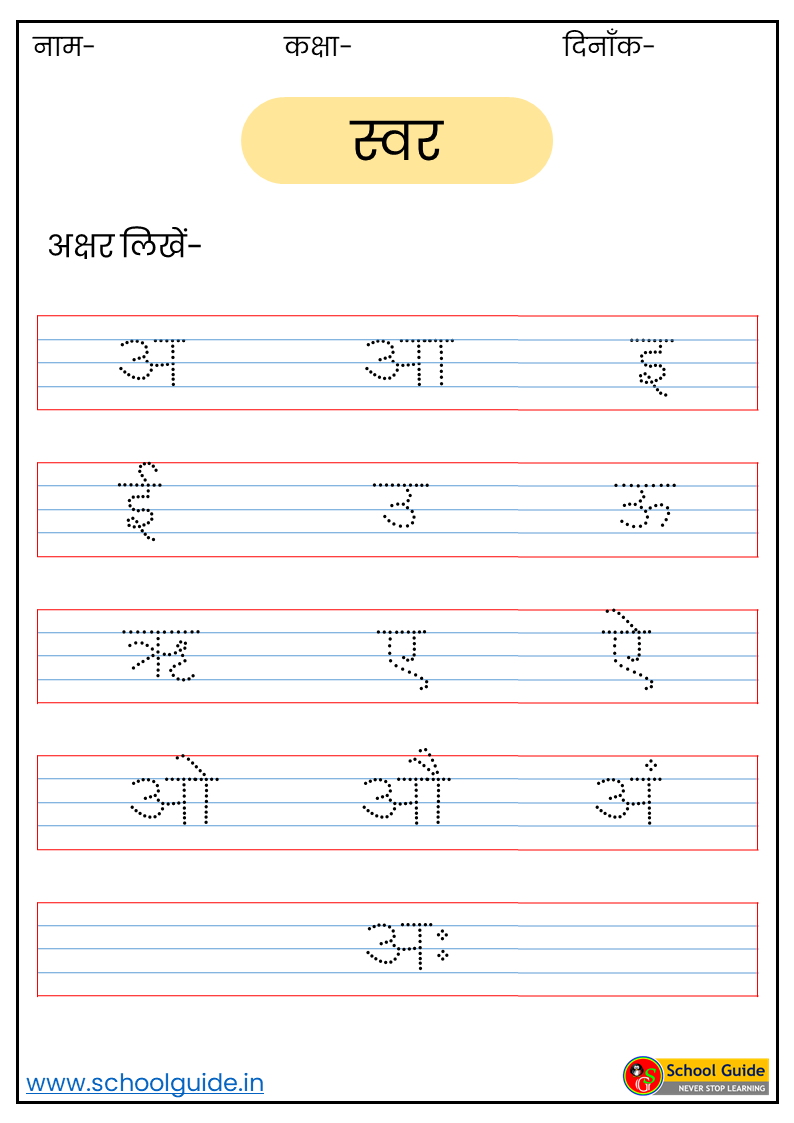 नाम- कक्षा- दिनाँक-
स्वर
अक्षर लिखें-
अ आ इ
ई उ ऊ
ऋ ए ऐ
ओ औ अं
अः
www.schoolguide.in
School Guide
NEVER STOP LEARNING